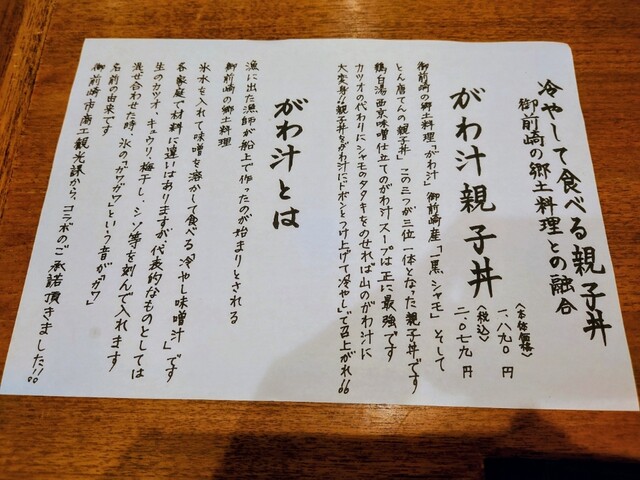 冷やして食べる親子丼
御前崎の郷土料理との融合
がわ汁親子丼
〈本体価格〉
一、八九〇円
〈税込〉
二、〇七九円
御前崎の郷土料理「がわ汁」御前崎産「一黒シャモ」そして
とん唐てんの親子丼」この三つが三位一体となった親子丼です
鶏白湯西京味噌仕立てのがわ汁スープは正に最強です
カツオの代わりにシャモのタタキをのせれば山のがわ汁に
大変身!!親子丼をがわ汁にドボンとつけ上げて冷やし〟で召上がれ!!
がわ汁とは
漁に出た漁師が船上で作ったのが始まりとされる
御前崎の郷土料理
氷水を入れて味噌を溶かして食べる「冷やし味噌汁」です
各家庭で材料に違いはありますが代表的なものとしては
生のカツオ、キュウリ、梅干し、シソ等を刻んで入れます
混ぜ合わせた時、氷の「ガワガワ」という音が〝ガワ〟
名前の由来です
御前崎市商工観光課から、コラボのご承諾頂きました!!